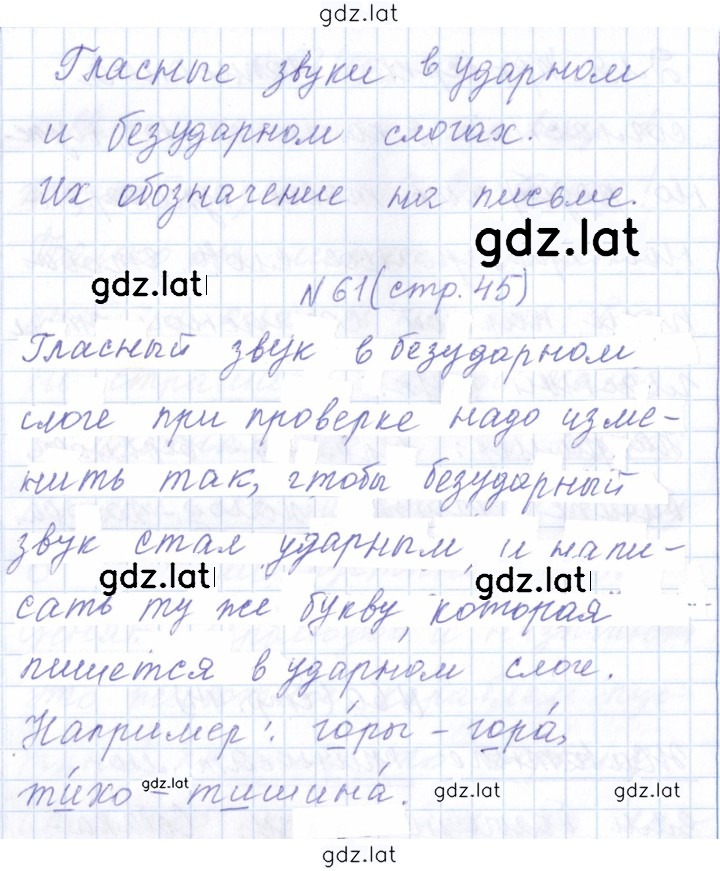 gdz.lat
Гласные звуки в ударном
и безударном слогах.
Их обозначение на письме.
gdz.lat
gdz.lat
№ 61 (стр. 45)
Гласный звук в безударном
слоге при проверке надо изме-
нить так, чтобы безударный
звук стал ударным, и напи-
gdz.lat
gdz.lat
сать ту же букву, которая
пишется в ударном слоге.
Например: го́ры – гора́,
ти́хо – тишина́.
gdz.lat
gdz.lat
gdz.lat
gdz.lat